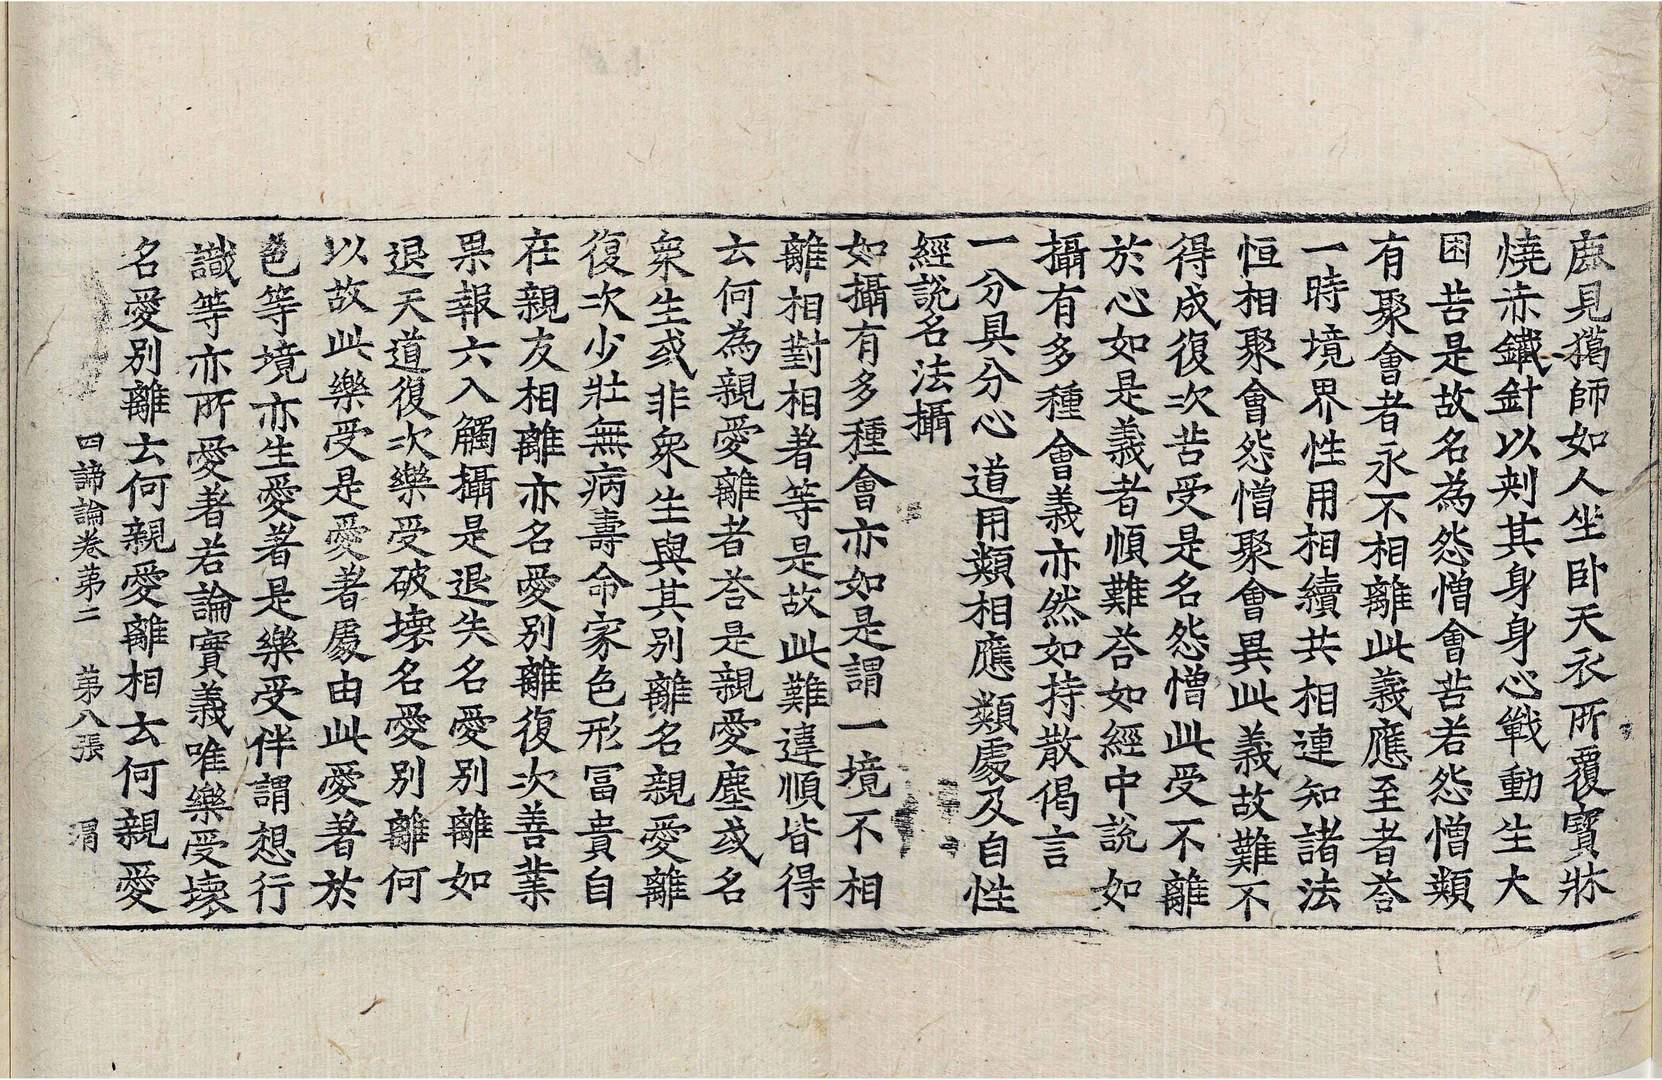 鹿見獦師如人坐卧天衣所覆寳牀
燒赤鐵針以刾其身身心戰動生大
困苦是故名為怨憎會苦若怨憎類
有聚會者永不相離此義應至者荅
一時境界性用相續共相連知諸法
恒相聚會怨憎聚會異此義故難不
得成復次苦受是名怨憎此受不離
於心如是義者頠難荅如經中說如
攝有多種會義亦然如持散偈言
一分具分心　道用類相應　類處及自性
經說名法攝
如攝有多種會亦如是謂一境不相
離相對相著等是故此難違順皆得
云何為親愛離者荅是親愛塵或名
衆生或非衆生與其別離名親愛離
復次少壯無病壽命家色形冨貴自
在親友相離亦名愛別離復次善業
果報六入觸攝是退失名愛別離如
退天道復次樂受破壞名愛別離何
以故此樂受是愛著處由此愛著於
色等境亦生愛著是樂受伴謂想行
識等亦所愛著若論實義唯樂受壞
名愛別離云何親愛離相云何親愛
四諦論卷第二　第八張　渭